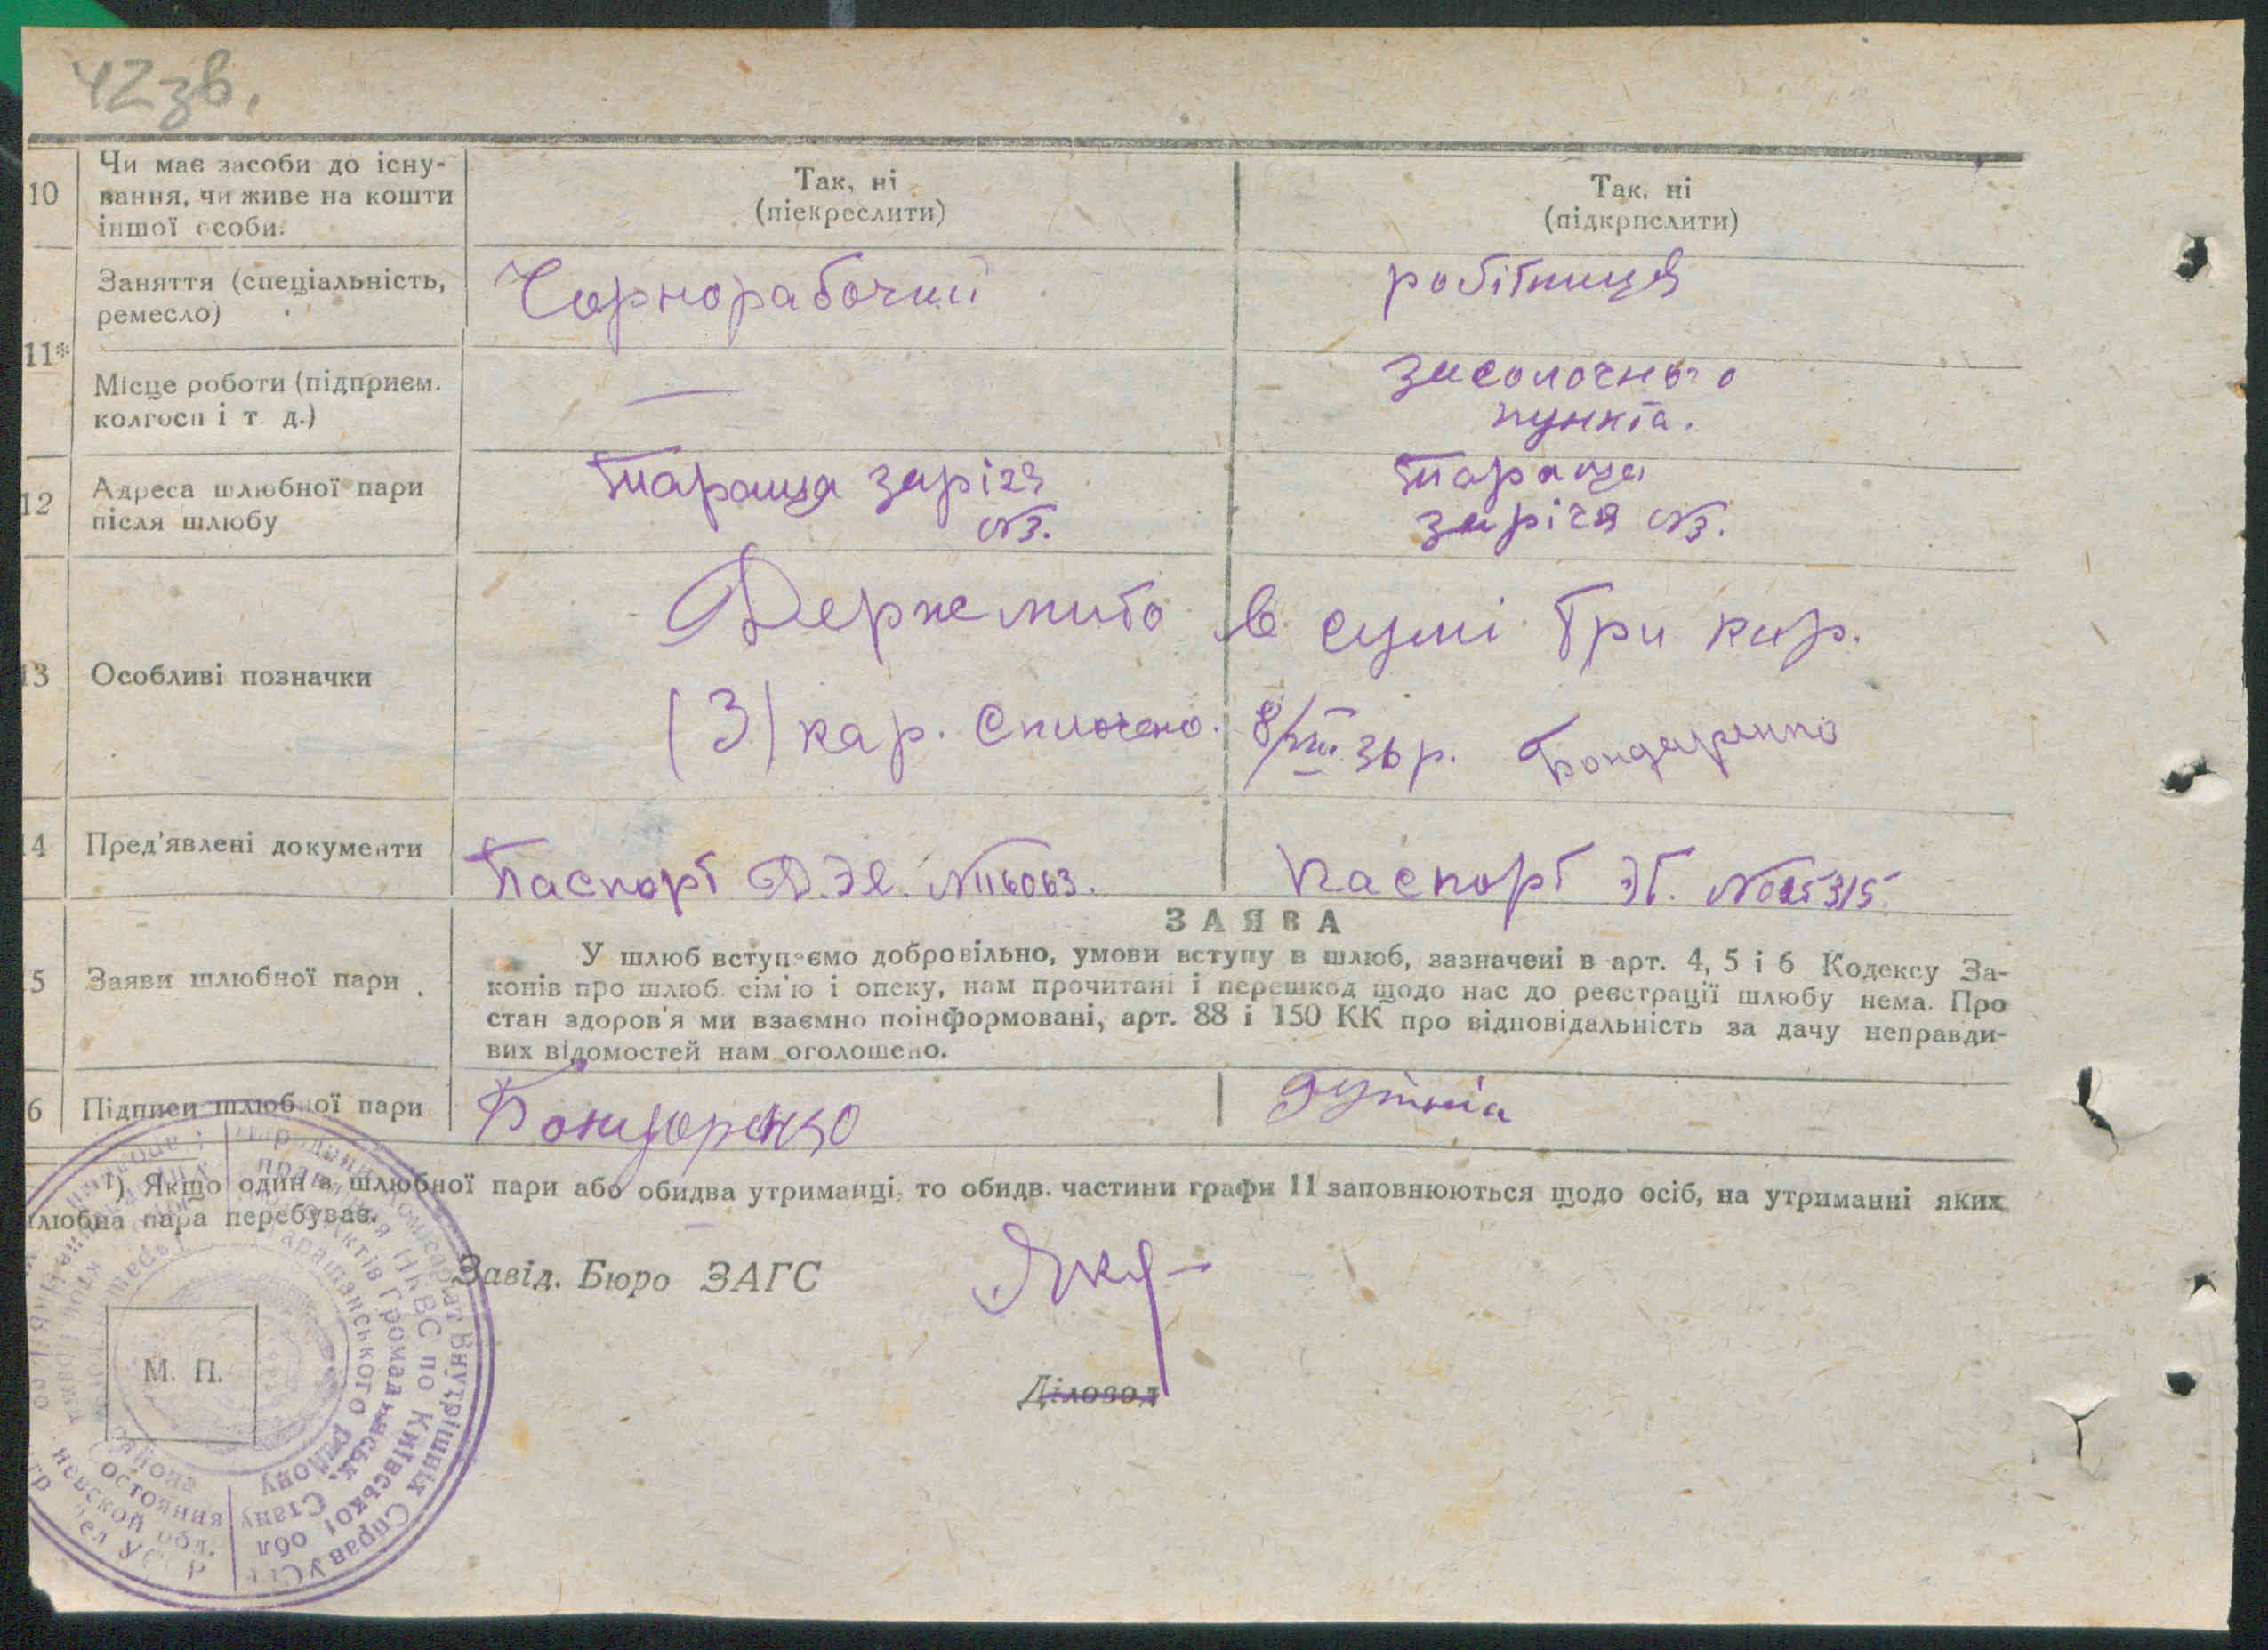 42зв.
10
Чи має засоби до існу-
вання, чи живе на кошти
іншої особи.
Так, ні
(піекреслити)
Так, ні
(підкрпслити)
11*
Заняття (спеціальність,
ремесло)
Чорнорабочий
робітниця
Місце роботи (підприєм.
колгосп і т. д.)
—
засолочного
пункта.
12
Адреса шлюбної пари
після шлюбу
Тараща заріччя
№3.
Тараща
заріччя №3.
13
Особливі позначки
Держмито в сумі три кар.
(3) кар. Сплочено. 8/VIII 36 р. Бондаренко
14
Пред'явлені документи
Паспорт Д.ЭЯ. №116063.
Паспорт ЭТ. №025315
5
Заяви шлюбної пари
ЗАЯВА
У шлюб вступаємо добровільно, умови вступу в шлюб, зазначені в арт. 4, 5 і 6 Кодексу За-
конів про шлюб сім'ю і опеку, нам прочитані і перешкод щодо нас до реєстрації шлюбу нема. Про
стан здоров'я ми взаємно поінформовані, арт. 88 і 150 КК про відповідальність за дачу неправди-
вих відомостей нам оголошено.
6
Підписи шлюбної пари
Бондаренко
1) Якщо один з шлюбної пари або обидва утриманці, то обидв. частини графи 11 заповнюються щодо осіб, на утриманні яких
шлюбна пара перебуває.
Завід. Бюро ЗАГС
М. П.
Діловод
Народний Комісаріат Внутрішніх Справ УСРР
правління НКВС по Київської обл
Актів Громадянськ. Стану
Таращанського району